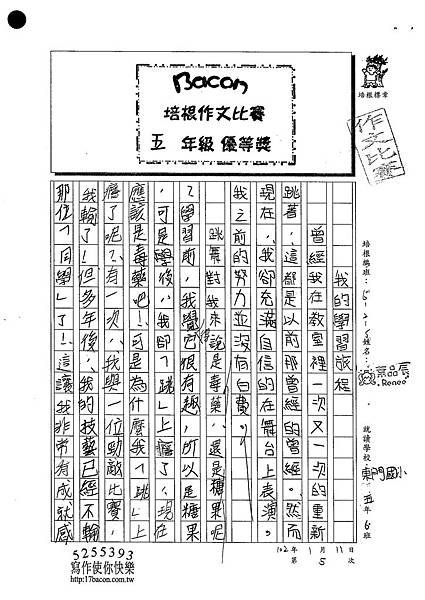 Bacon
培根作文比賽
五 年級 優等獎
培根標章
作文比賽
培根學班：
姓名：
Renee
就讀學校
東門國小
五年6班
102年1月11日
第 5 次
我的學習旅程
曾經我在教室裡一次又一次的重新
跳著，這都是以前那曾經的曾經。然而
現在，我卻充滿自信的在舞台上表演。
我之前的努力並沒有白費。
跳舞對我來說是毒藥，還是糖果呢
？學習前，我覺得很有趣，所以是糖果
，可是學後，我卻「跳」上癮了，現在
應該是毒藥吧！可是為什麼我「跳」上
癮了呢？有一次，我與一位勁敵比賽，
我輸了！但多年後，我的技藝已經不輸
那位「同學」了！這讓我非常有成就感
5255393
寫作使你快樂
http://17bacon.com.tw